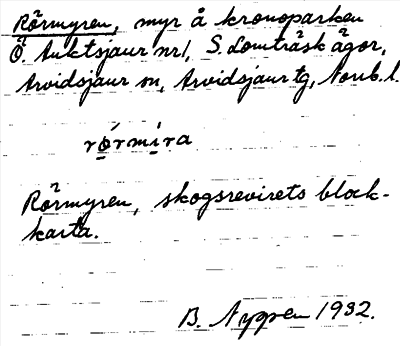 Rörmyren, myr å kronoparken
Ö. Auktsjaur nr 1, S. Lomträsk ägor,
Arvidsjaur sn, Arvidsjaur tg, Norrb. l.
rǫ́rmi̱ra
Rörmyren, skogsrevirets block-
karta.
B. Nygren 1932.